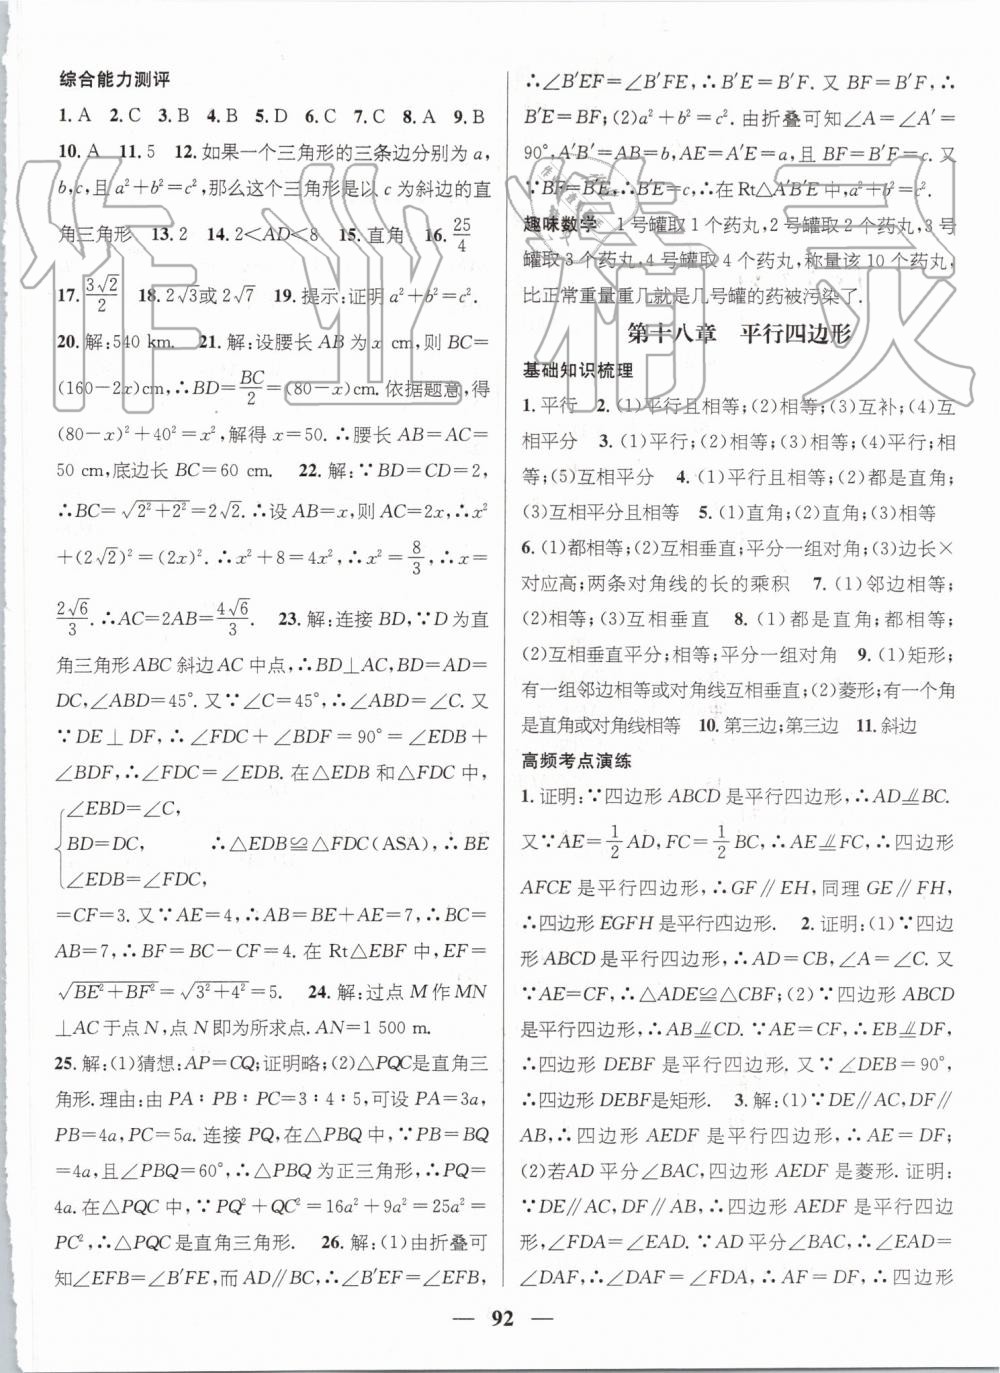 综合能力测评
1. A 2. C 3. B 4. B 5. D 6. C 7. C 8. A 9. B
10. A 11. 5 12. 如果一个三角形的三条边分别为 a,
b,c,且 a²+b²=c²,那么这个三角形是以 c 为斜边的直
角三角形 13. 2 14. 2<AD<8 15. 直角 16. 25/4
17. 3√2/2 18. 2√3或 2√7 19. 提示:证明 a²+b²=c².
20. 解:540 km. 21. 解:设腰长 AB 为 x cm,则 BC=
(160-2x)cm,∴BD=BC/2=(80-x)cm. 依据题意,得
(80-x)²+40²=x²,解得 x=50. ∴腰长 AB=AC=
50 cm,底边长 BC=60 cm. 22. 解:∵BD=CD=2,
∴BC=√(2²+2²)=2√2. ∴设 AB=x,则 AC=2x,∴x²
+(2√2)²=(2x)². ∴x²+8=4x²,∴x²=8/3,∴x=
2√6/3. ∴AC=2AB=4√6/3. 23. 解:连接 BD,∵D 为直
角三角形 ABC 斜边 AC 中点,∴BD⊥AC,BD=AD=
DC,∠ABD=45°. 又∵∠C=45°,∴∠ABD=∠C. 又
∵DE⊥DF,∴∠FDC+∠BDF=90°=∠EDB+
∠BDF,∴∠FDC=∠EDB. 在△EDB 和△FDC 中,
∠EBD=∠C,
BD=DC, ∴△EDB≌△FDC(ASA),∴BE
∠EDB=∠FDC,
=CF=3. 又∵AE=4,∴AB=BE+AE=7,∴BC=
AB=7,∴BF=BC-CF=4. 在 Rt△EBF 中,EF=
√(BE²+BF²)=√(3²+4²)=5. 24. 解:过点 M 作 MN
⊥AC 于点 N,点 N 即为所求点. AN=1 500 m.
25. 解:(1)猜想:AP=CQ;证明略;(2)△PQC 是直角三
角形. 理由:由 PA∶PB∶PC=3∶4∶5,可设 PA=3a,
PB=4a,PC=5a. 连接 PQ,在△PBQ 中,∵PB=BQ
=4a,且∠PBQ=60°,∴△PBQ 为正三角形,∴PQ=
4a. 在△PQC 中,∵PQ²+QC²=16a²+9a²=25a²=
PC²,∴△PQC 是直角三角形. 26. 解:(1)由折叠可
知∠EFB=∠B′FE,而 AD∥BC,∴∠B′EF=∠EFB,
∴∠B′EF=∠B′FE,∴B′E=B′F. 又 BF=B′F,∴
B′E=BF;(2)a²+b²=c². 由折叠可知∠A=∠A′=
90°,A′B′=AB=b,AE=A′E=a,且 BF=B′F=c. 又
∵BF=B′E,∴B′E=c,∴在 Rt△A′B′E 中,a²+b²=c².
趣味数学 1 号罐取 1 个药丸,2 号罐取 2 个药丸,3 号
罐取 3 个药丸,4 号罐取 4 个药丸,称量该 10 个药丸,
比正常重量重几就是几号罐的药被污染了.
第十八章 平行四边形
基础知识梳理
1. 平行 2. (1)平行且相等;(2)相等;(3)互补;(4)互
相平分 3. (1)平行;(2)相等;(3)相等;(4)平行;相
等;(5)互相平分 4. (1)平行且相等;(2)都是直角;
(3)互相平分且相等 5. (1)直角;(2)直角;(3)相等
6. (1)都相等;(2)互相垂直;平分一组对角;(3)边长×
对应高;两条对角线的长的乘积 7. (1)邻边相等;
(2)相等;(3)互相垂直 8. (1)都是直角;都相等;
(2)互相垂直平分;相等;平分一组对角 9. (1)矩形;
有一组邻边相等或对角线互相垂直;(2)菱形;有一个角
是直角或对角线相等 10. 第三边;第三边 11. 斜边
高频考点演练
1. 证明:∵四边形 ABCD 是平行四边形,∴AD⫽BC.
又∵AE=1/2 AD,FC=1/2 BC,∴AE⫽FC,∴四边形
AFCE 是平行四边形,∴GF∥EH,同理 GE∥FH,
∴四边形 EGFH 是平行四边形. 2. 证明:(1)∵四边
形 ABCD 是平行四边形,∴AD=CB,∠A=∠C. 又
∵AE=CF,∴△ADE≌△CBF;(2)∵四边形 ABCD
是平行四边形,∴AB⫽CD. ∵AE=CF,∴EB⫽DF,
∴四边形 DEBF 是平行四边形. 又∵∠DEB=90°,
∴四边形 DEBF 是矩形. 3. 解:(1)∵DE∥AC,DF∥
AB,∴四边形 AEDF 是平行四边形,∴AE=DF;
(2)若AD 平分∠BAC,四边形 AEDF 是菱形. 证明:
∵DE∥AC,DF∥AB,∴四边形 AEDF 是平行四边形,
∴∠FDA=∠EAD. ∵AD 平分∠BAC,∴∠EAD=
∠DAF,∴∠DAF=∠FDA,∴AF=DF,∴四边形
— 92 —